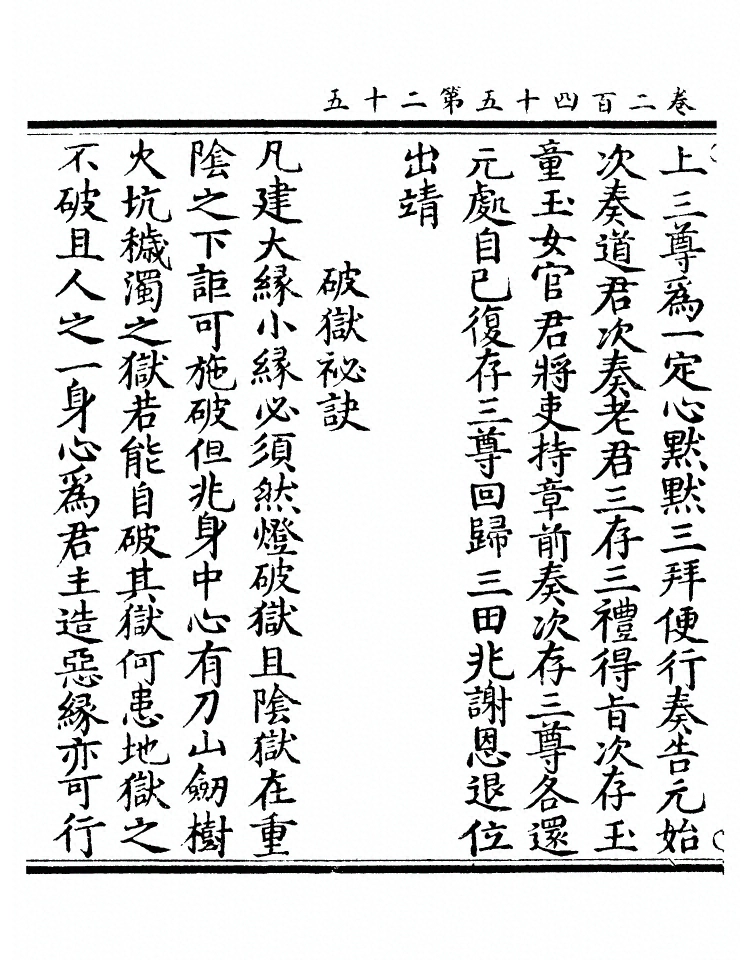 卷二百四十五第二十五
上三尊爲一定心默默三拜便行奏告元始
次奏道君次奏老君三存三禮得旨次存玉
童玉女官君將吏持章前奏次存三尊各還
元處自已復存三尊回歸三田兆謝恩退位
出靖
破獄祕訣
凡建大緣小緣必須然燈破獄且陰獄在重
陰之下詎可施破但兆身中心有刀山劔樹
火坑穢濁之獄若能自破其獄何患地獄之
不破且人之一身心爲君主造惡緣亦可行